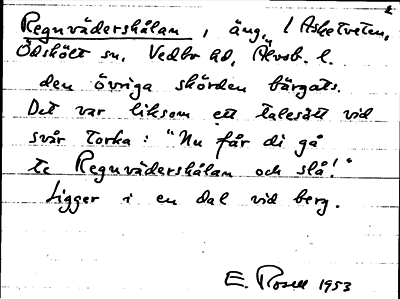 2
Regnvädershålan, äng, i Asketveten,
Ödskölt sn. Vedbo hd, Älvsb. l.
den övriga skörden bärgats.
Det var liksom ett talesätt vid
svår torka: "Nu får di gå
te Regnvädershålan och slå!"
Ligger i en dal vid berg.
E. Rosell 1953